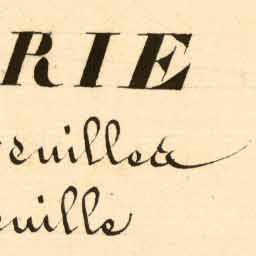 RIE
euilles
euille